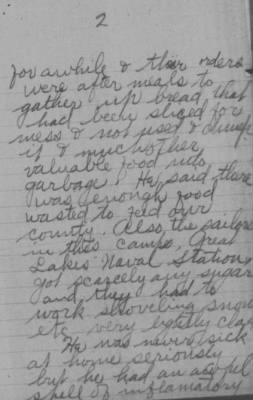 2
for awhile & their orders
were after meals to
gather up bread that
had been sliced for
mess & not used & dump
it & much other
valuable food into
garbage. He said there
was enough food
wasted to feed our
county. Also, the sailors
in this camp, Great
Lakes Naval Station,
got scarcely any sugar
and they had to
work shoveling snow
etc very lightly clad
He was never sick
at home seriously
but he had an awful
spell of inflamatory